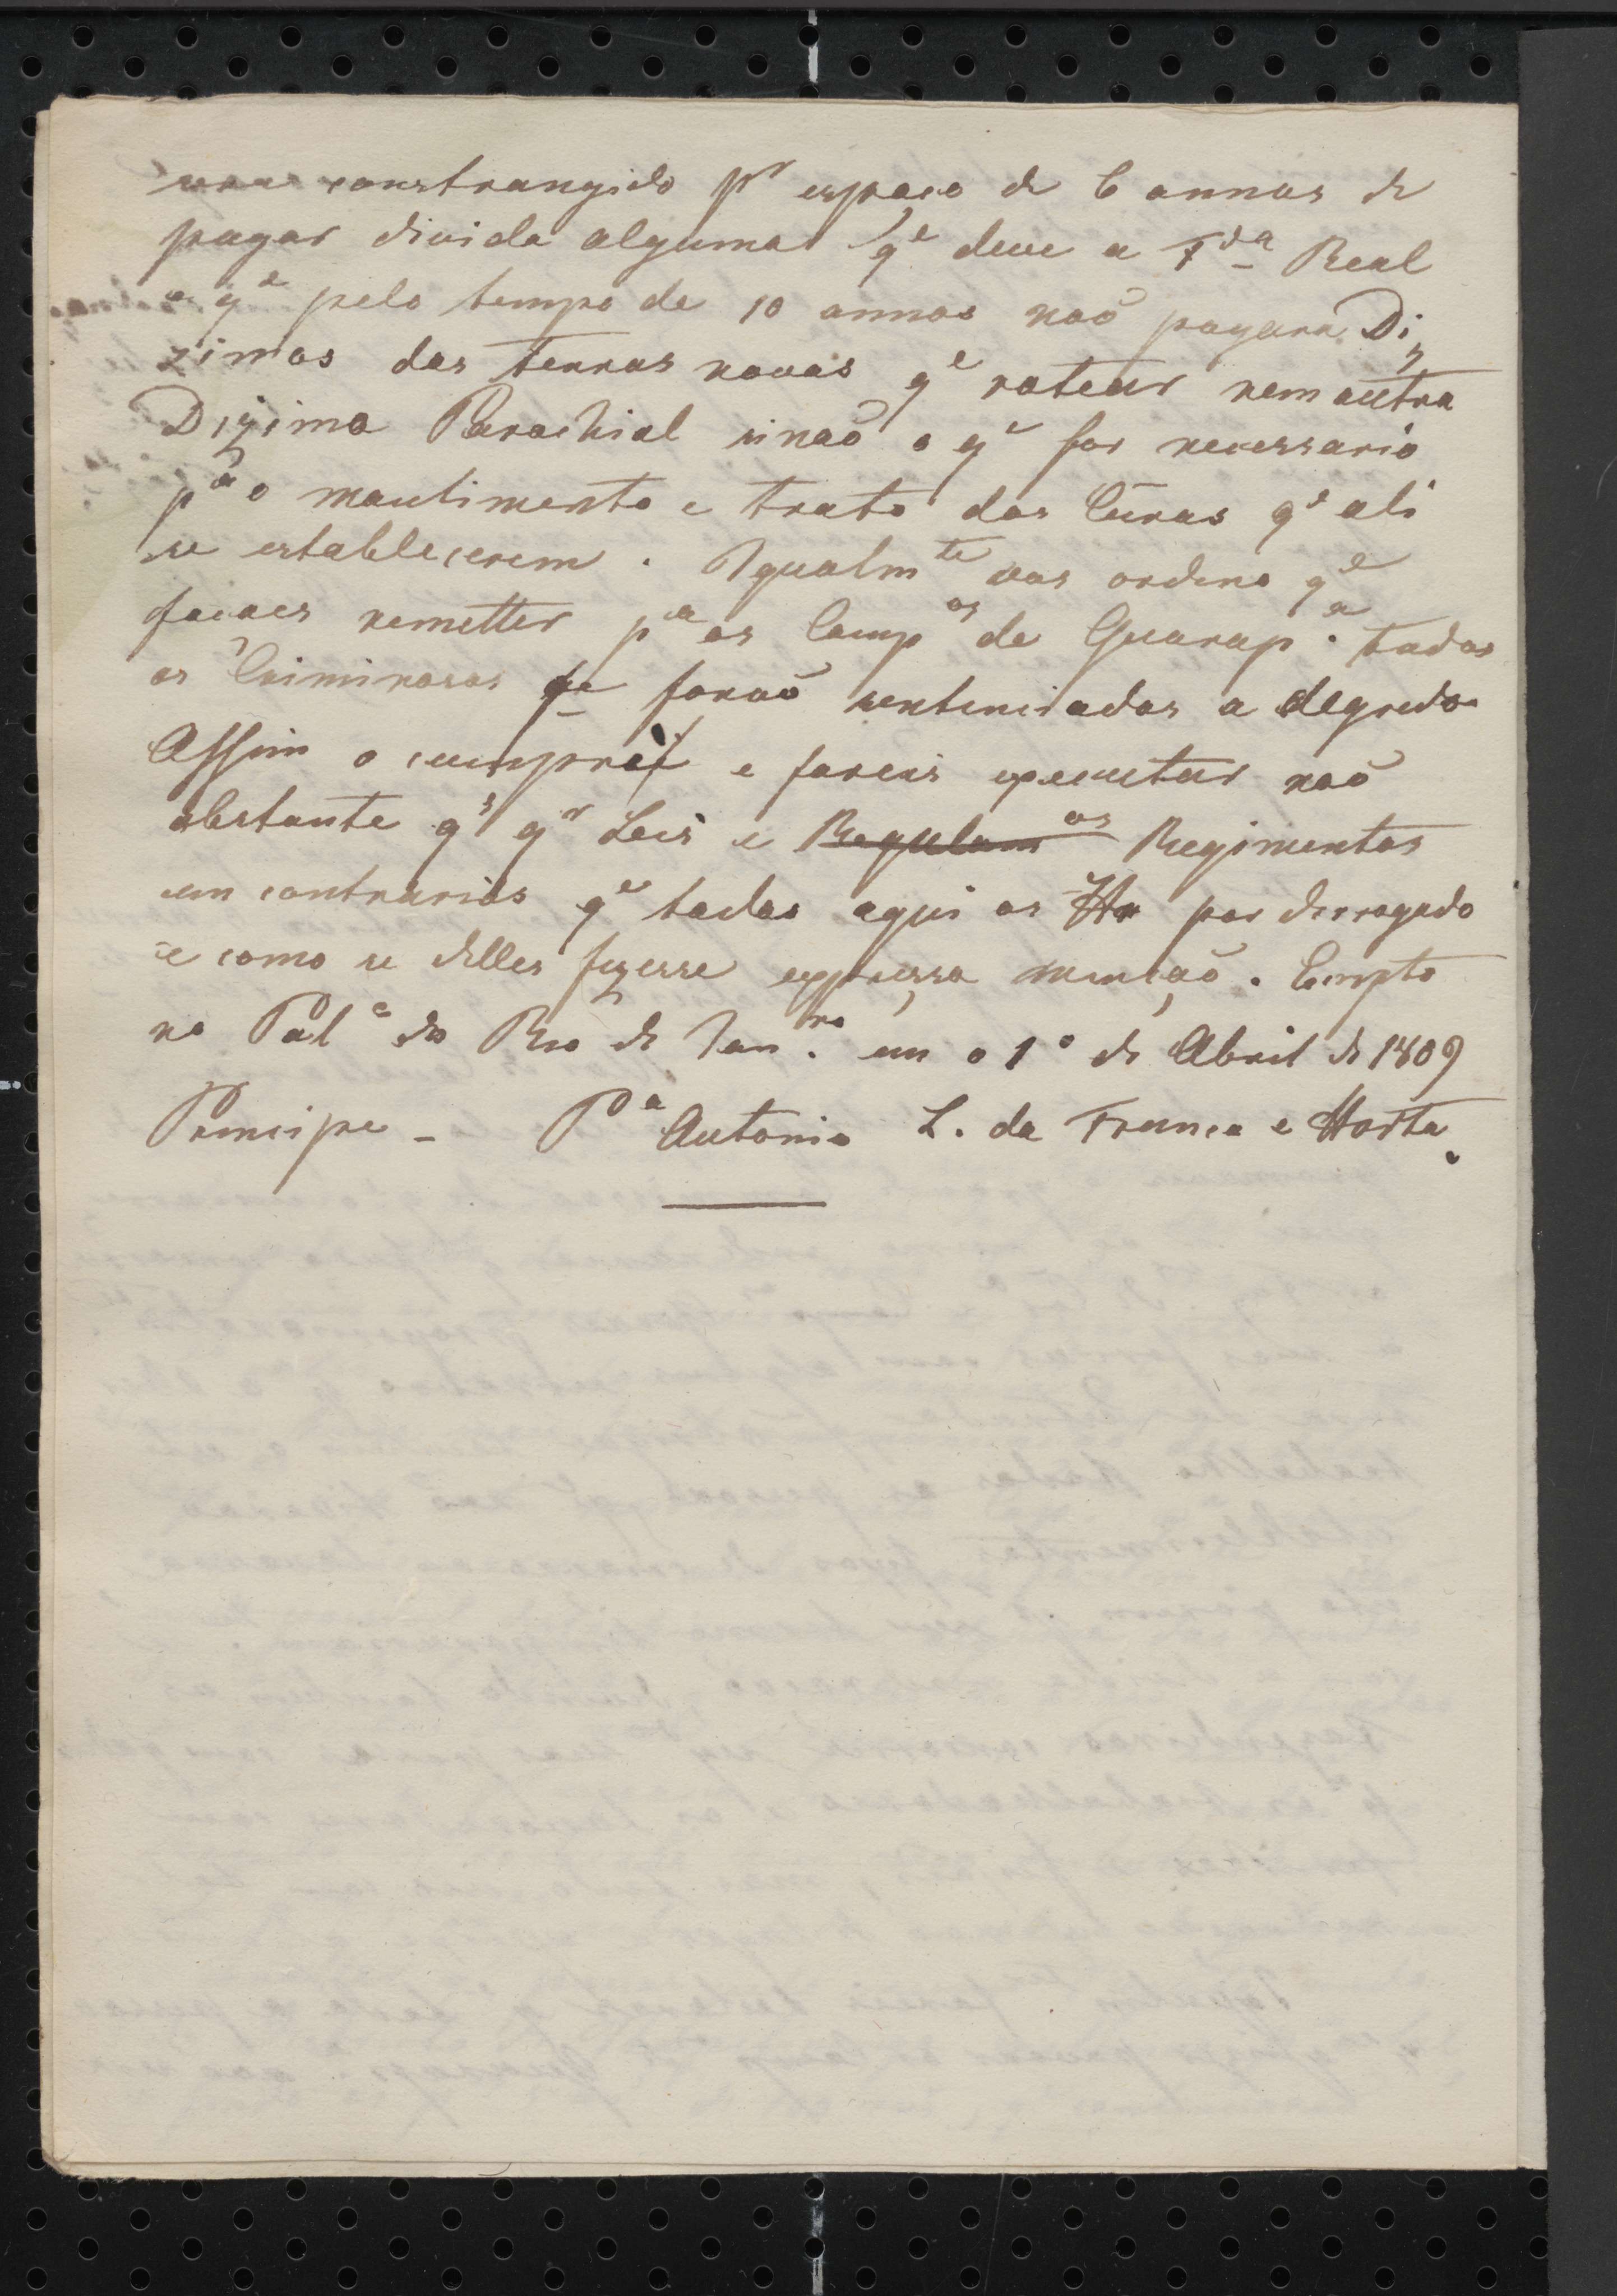 constrangido pr espaço de 6 annos de
pagar divida alguma qe deve a Fda Real
e qe pelo tempo de 10 annos naõ pagara Di
zimos das terras novas qe rotear nem outra
Dizima Parochial sinaõ o qe for necessario
pa o mantimento e trato dos Curas qe ali
se establecerem. Igualmte vos ordeno qe
façaes remetter pa os Campos de Guarapa. todos
os Criminosos qe foraõ sentenciados a degredo
Assim o cumpraes e fareis executar naõ
obstante qs qr Leis e Regulamos Regimentos
em contrarios qe todos aqui os Hr por derrogado
e como se delles fizesse expressa mençaõ. Escripto
no Pale do Rio de Janro. em o 1o de Abril de 1809
Principe - Pa Antonio L. da Franca e Horta.